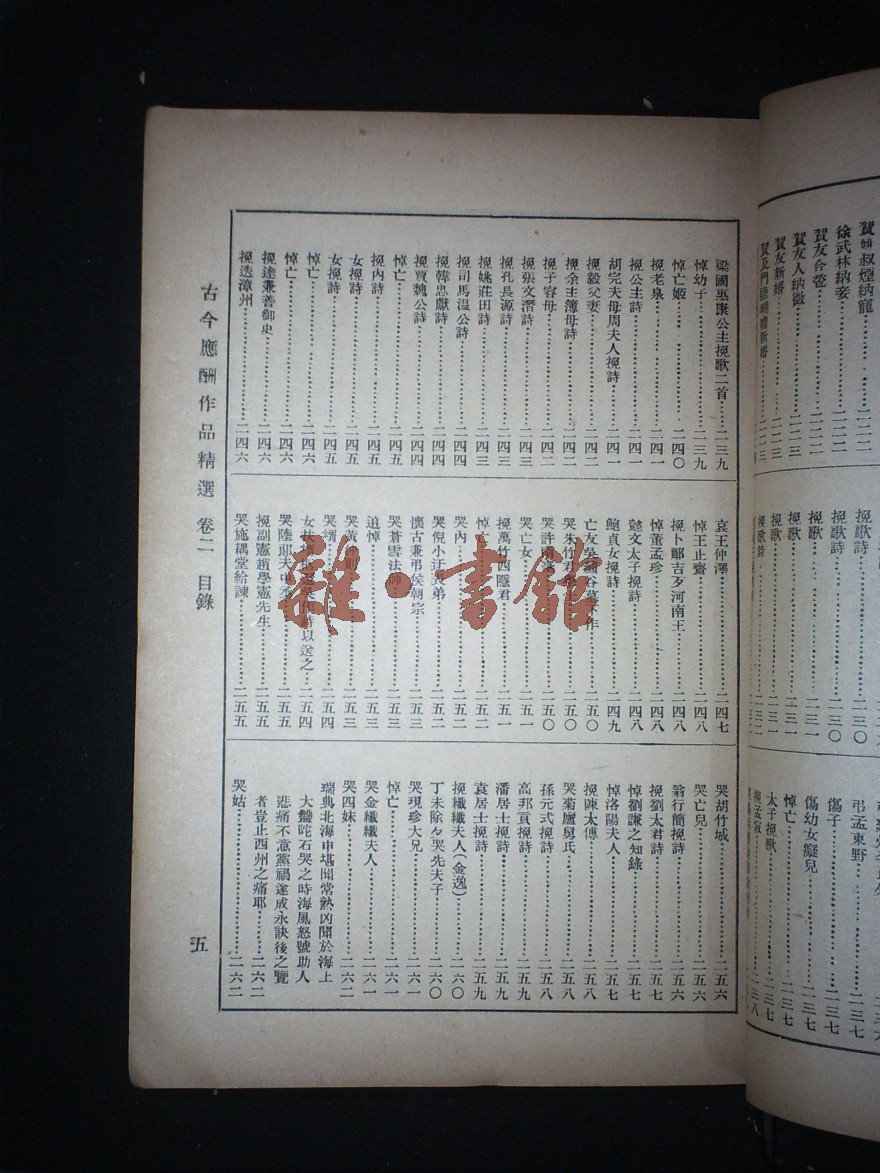 賀友合巹……二二二
賀友人納徵……二二三
賀友新婚……二二三
徐武林納妾……二二二
挽歌詩……二三〇
挽歌……二三一
挽歌……二三一
弔孟東野……二三七
傷子……二三七
傷幼女癡兒……二三七
悼亡……二三七
太子挽歌……二三七
梁國惠康公主挽歌二首……二三九
悼幼子……二三九
悼亡姬……二四〇
挽老泉……二四一
挽公主詩……二四一
胡完夫母周夫人挽詩……二四一
挽毅父妻……二四二
挽余主簿母詩……二四二
挽子容母……二四二
挽張文潛詩……二四三
挽孔長源詩……二四三
挽姚莊田詩……二四三
挽司馬溫公詩……二四四
挽韓忠獻詩……二四四
挽賈魏公詩……二四四
悼亡……二四五
挽內詩……二四五
女挽詩……二四五
女挽詩……二四五
悼亡……二四六
悼亡……二四六
挽達兼善御史……二四六
挽迭漳州……二四六
哀王仲澤……二四七
悼王止齋……二四八
挽卜鄰吉歹河南王……二四八
悼董孟珍……二四八
懿文太子挽詩……二四八
鮑貞女挽詩……二四九
二五〇
哭朱竹君
二五〇
哭許
二五〇
哭亡女……二五一
挽萬竹西隱君……二五一
悼亡……二五二
哭內……二五二
哭倪小迂表弟……二五二
懷古兼弔侯朝宗……二五三
哭蒼雪法師……二五三
追悼……二五三
二五三
哭壻……二五四
以送之……二五四
哭陸
二五五
挽副憲趙學憲先生……二五五
哭施耦堂給諫……二五五
哭胡竹城……二五六
哭亡兒……二五六
翁行簡挽詩……二五六
挽劉太君詩……二五七
悼劉謙之知錄……二五七
悼洛陽夫人……二五七
挽陳太傅……二五八
哭菊廬舅氏……二五八
孫元式挽詩……二五八
高邦貢挽詩……二五九
潘居士挽詩……二五九
袁居士挽詩……二五九
挽纖纖夫人(金逸)……二六〇
丁未除夕哭先夫子……二六〇
哭現珍大兄……二六一
悼亡……二六一
哭金纖纖夫人……二六一
哭四妹……二六二
瑞典北海申堪聞常熟凶聞於海上
大盤陀石哭之時海風怒號助人
悲痛不意黨禍遂成永訣後之覽
者豈止西州之痛耶……二六二
哭姑……二六二
古今應酬作品精選 卷二 目錄
五
雜·書館